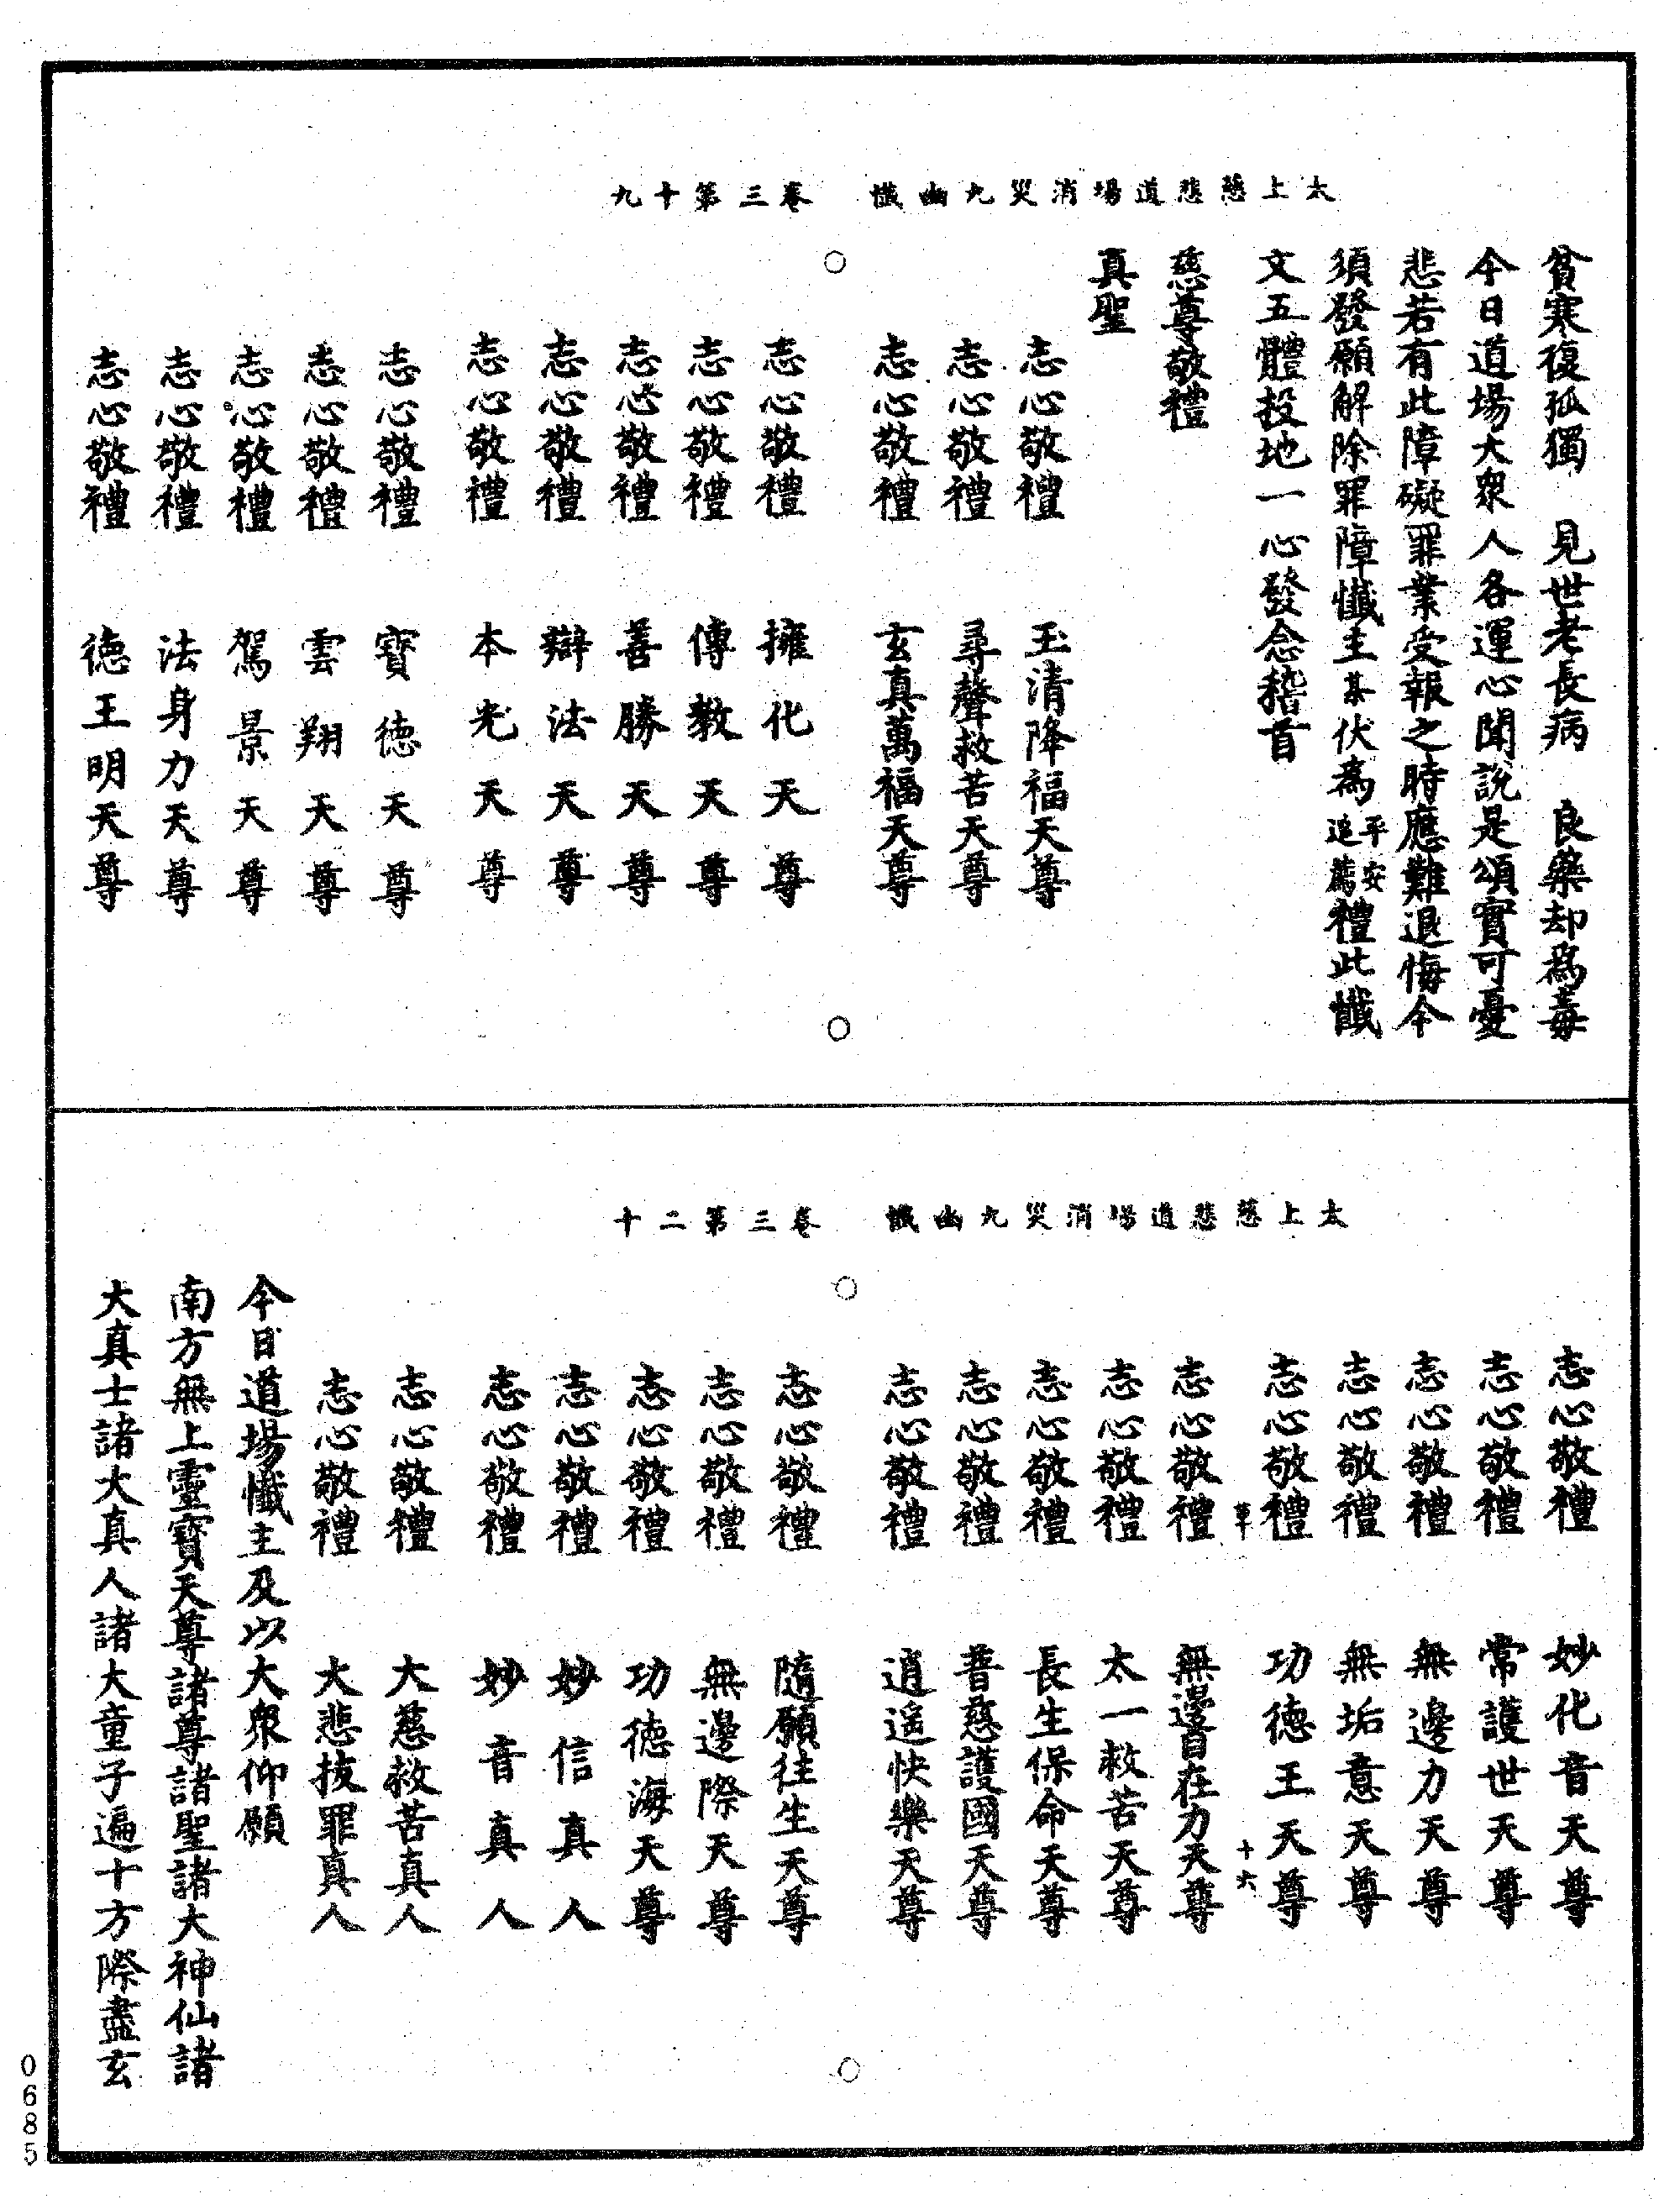 太上慈悲道場消災九幽懺　卷三第十九
貧寒復孤獨　見世老長病　良藥却為毒
今日道場大衆人各運心聞說是頌實可憂
悲若有此障礙罪業受報之時應難退悔今
須發願解除罪障懺主某伏為平安追薦禮此懺
文五體投地一心發念稽首
慈尊敬禮
真聖
志心敬禮　玉清降福天尊
志心敬禮　尋聲救苦天尊
志心敬禮　玄真萬福天尊
志心敬禮　擁化天尊
志心敬禮　傳教天尊
志心敬禮　善勝天尊
志心敬禮　辯法天尊
志心敬禮　本光天尊
志心敬禮　寶德天尊
志心敬禮　雲翔天尊
志心敬禮　駕景天尊
志心敬禮　法身力天尊
志心敬禮　德王明天尊
太上慈悲道場消災九幽懺　卷三第二十
志心敬禮　妙化音天尊
志心敬禮　常護世天尊
志心敬禮　無邊力天尊
志心敬禮　無垢意天尊
志心敬禮　功德王天尊
草十　十六
志心敬禮　無邊自在力天尊
志心敬禮　太一救苦天尊
志心敬禮　長生保命天尊
志心敬禮　普慈護國天尊
志心敬禮　逍遙快樂天尊
志心敬禮　隨願往生天尊
志心敬禮　無邊際天尊
志心敬禮　功德海天尊
志心敬禮　妙信真人
志心敬禮　妙音真人
志心敬禮　大慈救苦真人
志心敬禮　大悲拔罪真人
今日道場懺主及以大衆仰願
南方無上靈寶天尊諸尊諸聖諸大神仙諸
大真士諸大真人諸大童子遍十方際盡玄
0685